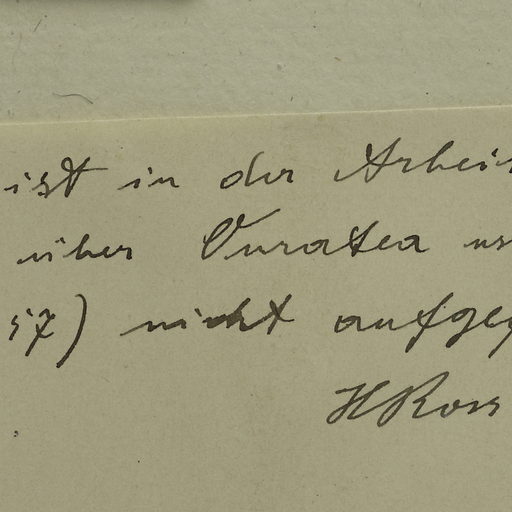 ist in der Arbeit
über Ouratea us
57) nicht aufgef
H Ross